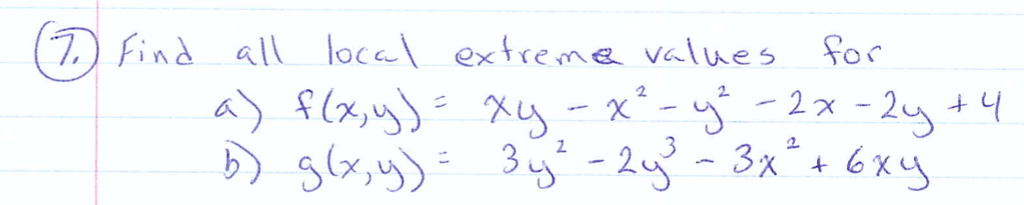 7. Find all local extreme values for
a) f(x,y) = xy - x² - y² - 2x - 2y + 4
b) g(x,y) = 3y² - 2y³ - 3x² + 6xy